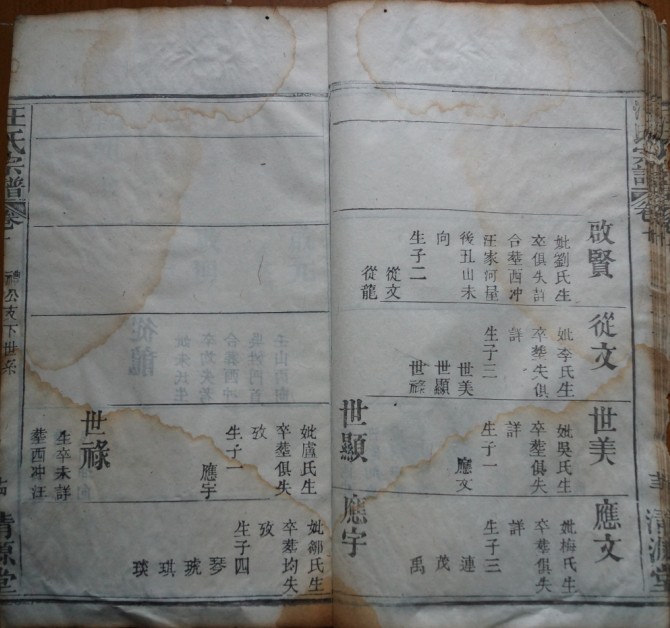 啟賢
妣劉氏生
卒俱失詳
合塟西冲
汪家何屋
後丑山未
向
生子二
從文
從龍
從文
妣李氏生
卒塟失俱
詳
生子三
世美
世顯
世祿
世美
妣吳氏生
卒塟俱失
詳
生子一
應文
應文
妣梅氏生
卒塟俱失
詳
生子三
連
茂
禹
清源堂
世顯
妣盧氏生
卒塟俱失
攷
生子一
應宇
世祿
生卒未詳
塟西冲汪
應宇
妣鄒氏生
卒塟均失
攷
生子四
琴
琥
琪
琰
汪氏宗譜
卷十
公支下世系
清源堂